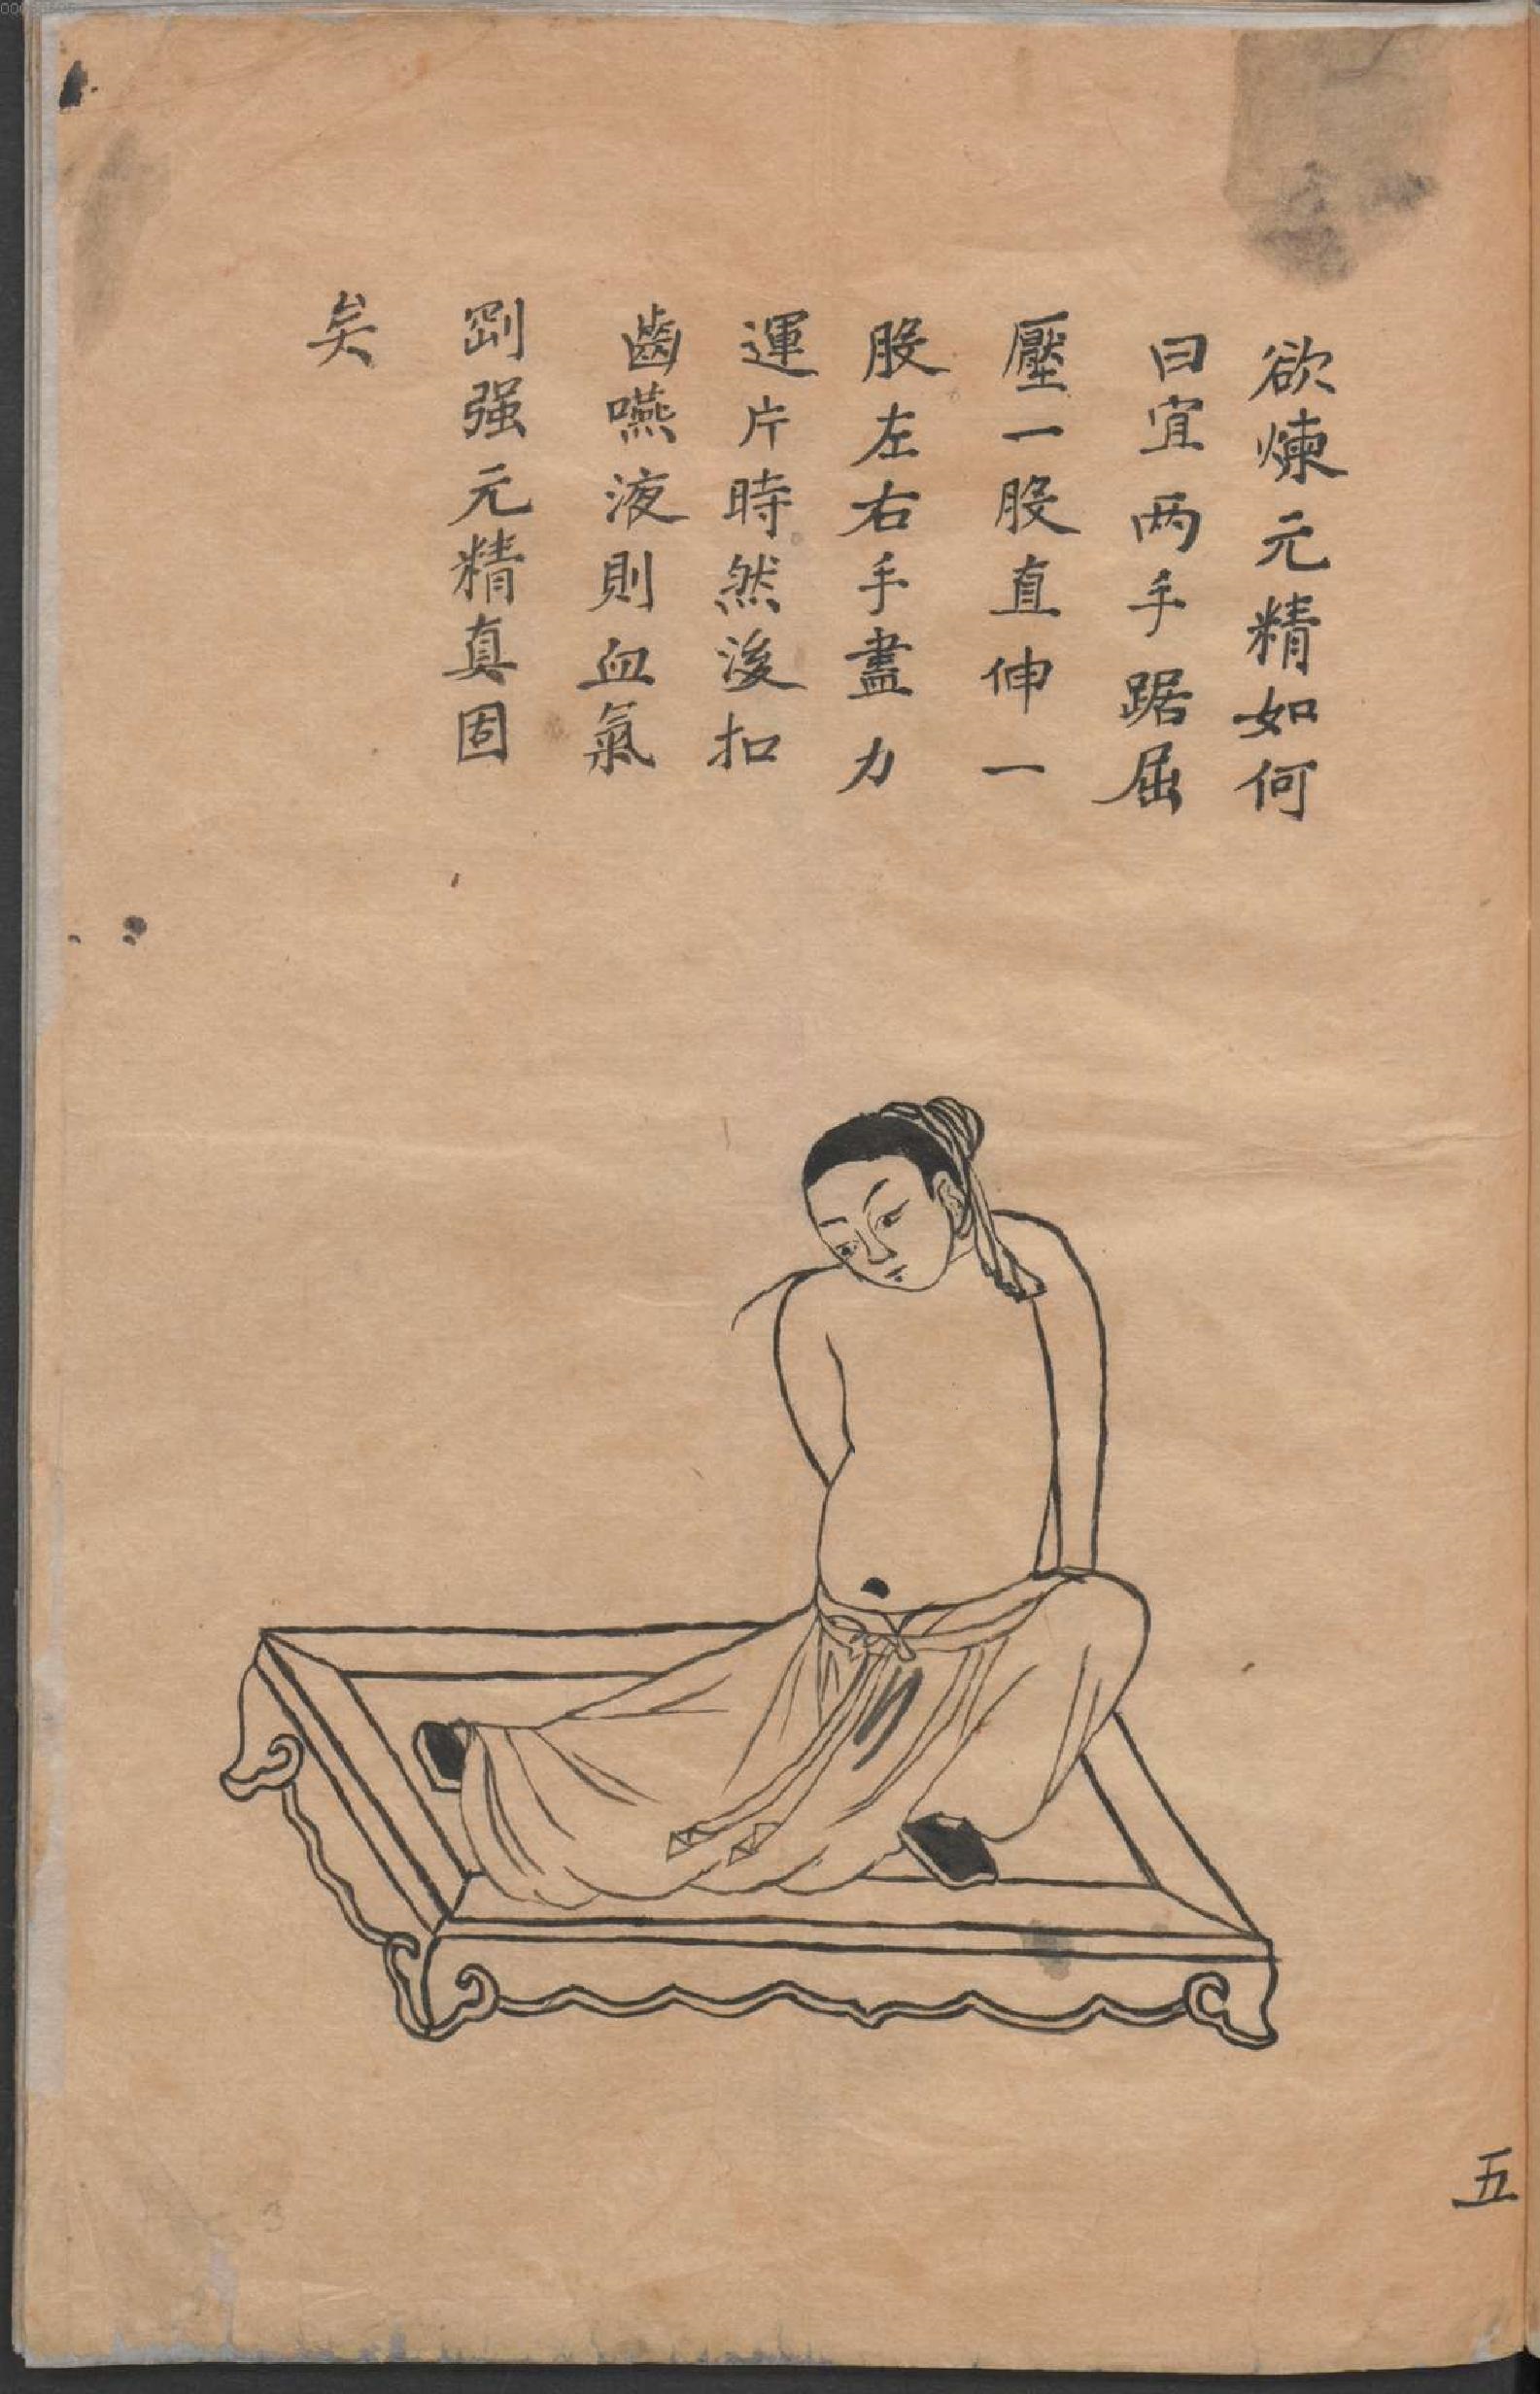 欲煉元精如何
曰宜两手踞屈
壓一股直伸一
股左右手盡力
運片時然後扣
齒嚥液則血氣
剛强元精真固
矣
五